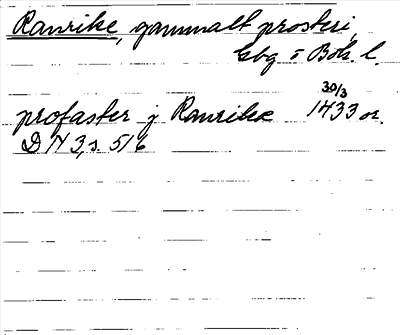 Ranrike, gammalt prosteri,
Gbg o Boh. l.
profaster j Ranrike 30/3 1433 or.
DN 3, s. 516